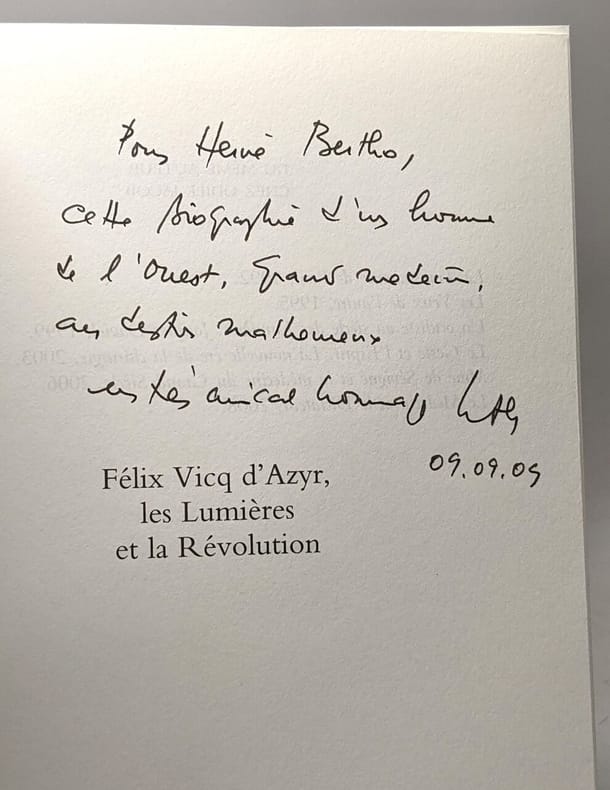 Pour Hervé Bertho,
cette biographie d'un homme
de l'Ouest, grand médecin,
au destin malheureux
en très amical hommage
09.09.09
Félix Vicq d'Azyr,
les Lumières
et la Révolution